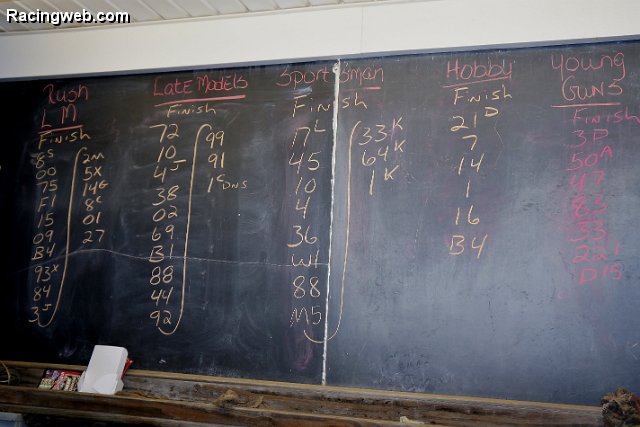 Racingweb.com
Rush
LM
Finish
8S
00
75
F1
15
09
B4
93x
84
35
2M
5x
14G
8c
01
27
Late Models
Finish
72
10
4J
38
02
69
B1
88
44
92
99
91
1c DNS
Sportsman
Finish
17L
45
10
4
36
W1
88
M5
33K
64K
1K
Hobby
Finish
21D
7
14
1
16
B4
Young
Guns
Finish
3D
50A
47
83
33
22J
D15